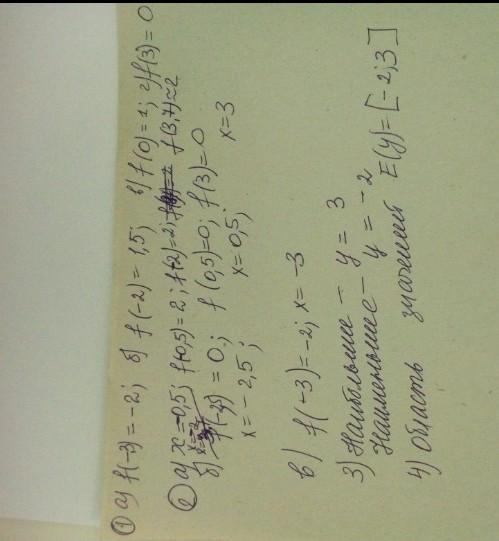 ① а) f(-3)=-2; б) f(-2)=1,5; в) f(0)=1; г) f(3)=0
② а) x=-0,5; f(-0,5)=2; f(-2)=2; f(3,7)≈2
б) =0; f(0,5)=0; f(3)=0
x=-2,5; x=0,5; x=3
в) f(-3)=-2; x=-3
3) Наибольшие - y=3
Наименьшие - y=-2
4) Область значений E(y)=[-2;3]